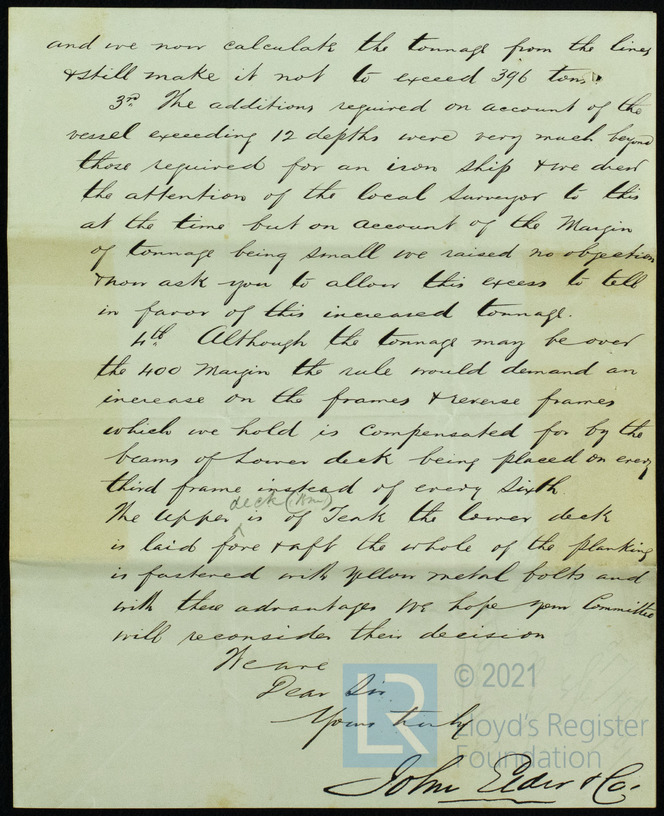 and we now calculate the tonnage from the lines
& still make it not to exceed 396 tons.
3rd. The additions required on account of the
vessel exceeding 12 depths were very much beyond
those required for an iron ship & we drew
the attention of the local surveyor to this
at the time but on account of the Margin
of tonnage being small we raised no objection
& now ask you to allow this excess to tell
in favor of this increased tonnage.
4th. Although the tonnage may be over
the 400 Margin the rule would demand an
increase on the frames & reverse frames
which we hold is compensated for by the
beams of Lower deck being placed on every
third frame instead of every Sixth.
deck
The Upper ^ is of Teak the lower deck
is laid fore & aft the whole of the planking
is fastened with Yellow metal bolts and
with these advantages we hope your Committee
will reconsider their decision
We are
Dear Sir
Yours truly
John Elder & Co.
LR
© 2021
Lloyd's Register
Foundation